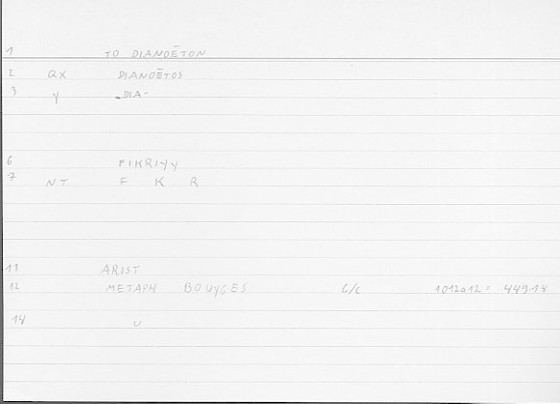 1 TO DIANOĒTON
2 QX DIANOĒTOS
3 Y DIA-
6 FIKRIYY
7 NT F K R
11 ARIST
12 METAPH BOUYGES C/C 1012a12 = 449.18
14 U